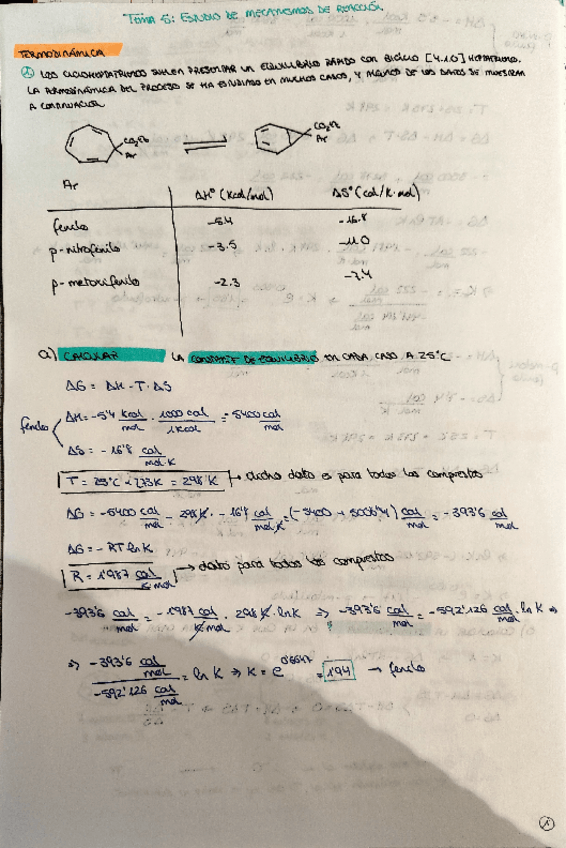 Tema 5: ESTUDIO DE MECANISMOS DE REACCIÓN
TERMODINÁMICA
LOS CICLOHEPTATRIENOS SUELEN PRESENTAR UN EQUILIBRIO RÁPIDO CON BICICLO [4.1.0] HEPTADIENO.
LA TERMODINÁMICA DEL PROCESO SE HA ESTUDIADO EN MUCHOS CASOS, Y ALGUNOS DE LOS DATOS SE MUESTRAN
A CONTINUACIÓN
CO2Et
Ar
CO2Et
Ar
Ar
ΔH° (kcal/mol)
ΔS° (cal/K·mol)
fenilo
-5.4
-16.8
p-nitrofenilo
-3.5
-11.0
p-metoxifenilo
-2.3
-7.4
a) CALCULAR LA CONSTANTE DE EQUILIBRIO EN CADA CASO A 25°C
ΔG = ΔH - T·ΔS
fenilo
ΔH = -5'4 kcal/mol · 1000 cal/1 kcal = -5400 cal/mol
ΔS = -16'8 cal/mol·K
T = 25°C + 273K = 298 K → dicho dato es para todos los compuestos
ΔG = -5400 cal/mol - 298K · -16'8 cal/mol·K = (-5400 + 5006'4) cal/mol = -393'6 cal/mol
ΔG = -RT ln K
R = 1'987 cal/K·mol → dato para todos los compuestos
-393'6 cal/mol = -1'987 cal/K·mol · 298K · ln K ⇒ -393'6 cal/mol = -592'126 cal/mol · ln K ⇒
⇒ -393'6 cal/mol / -592'126 cal/mol = ln K ⇒ K = e^0'6647 = 1'94 → fenilo
1